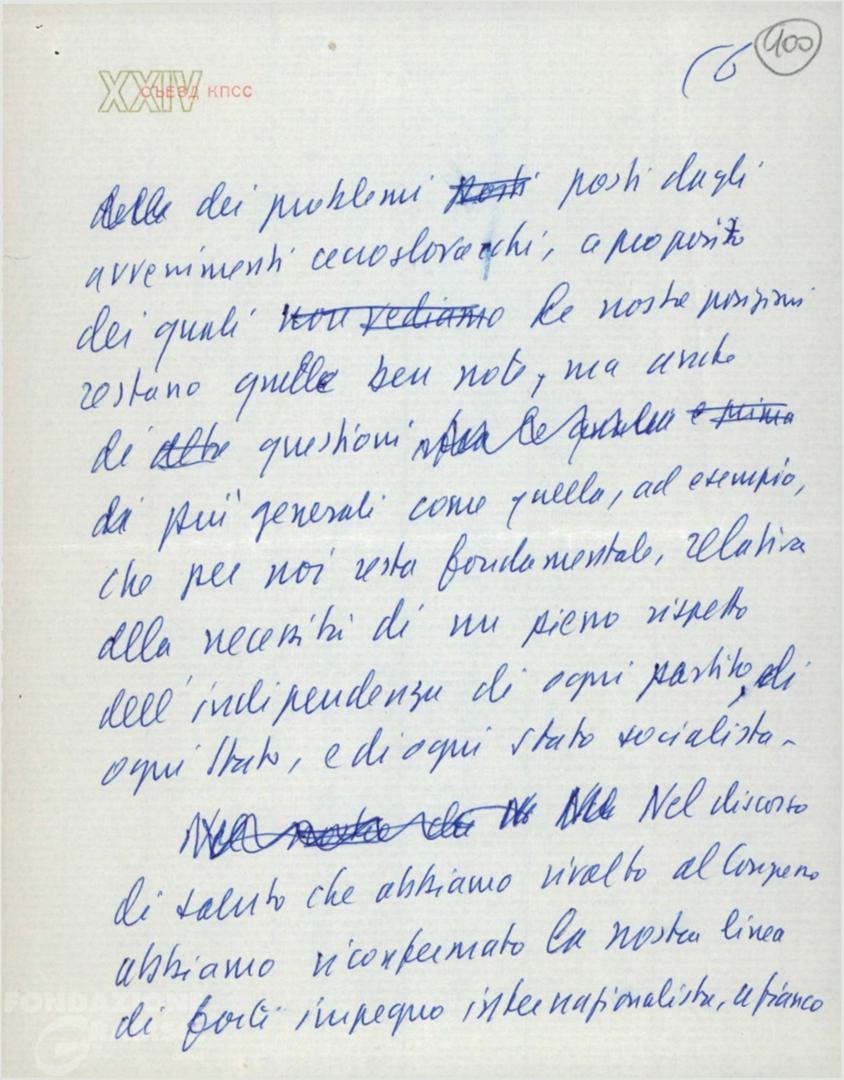 XXIV СЪЕЗД КПСС
(6 400
della dei problemi posti posti dagli
avvenimenti cecoslovacchi, a proposito
dei quali non vediamo le nostre posizioni
restano quelle ben note, ma anche
di altre questioni e prima
di più generali come quella, ad esempio,
che per noi resta fondamentale, relativa
alla necessità di un pieno rispetto
dell'indipendenza di ogni partito, di
ogni Stato, e di ogni stato socialista.
Nel discorso
di saluto che abbiamo rivolto al Congresso
abbiamo riconfermato la nostra linea
di forte impegno internazionalista, a fianco
FONDAZIONE